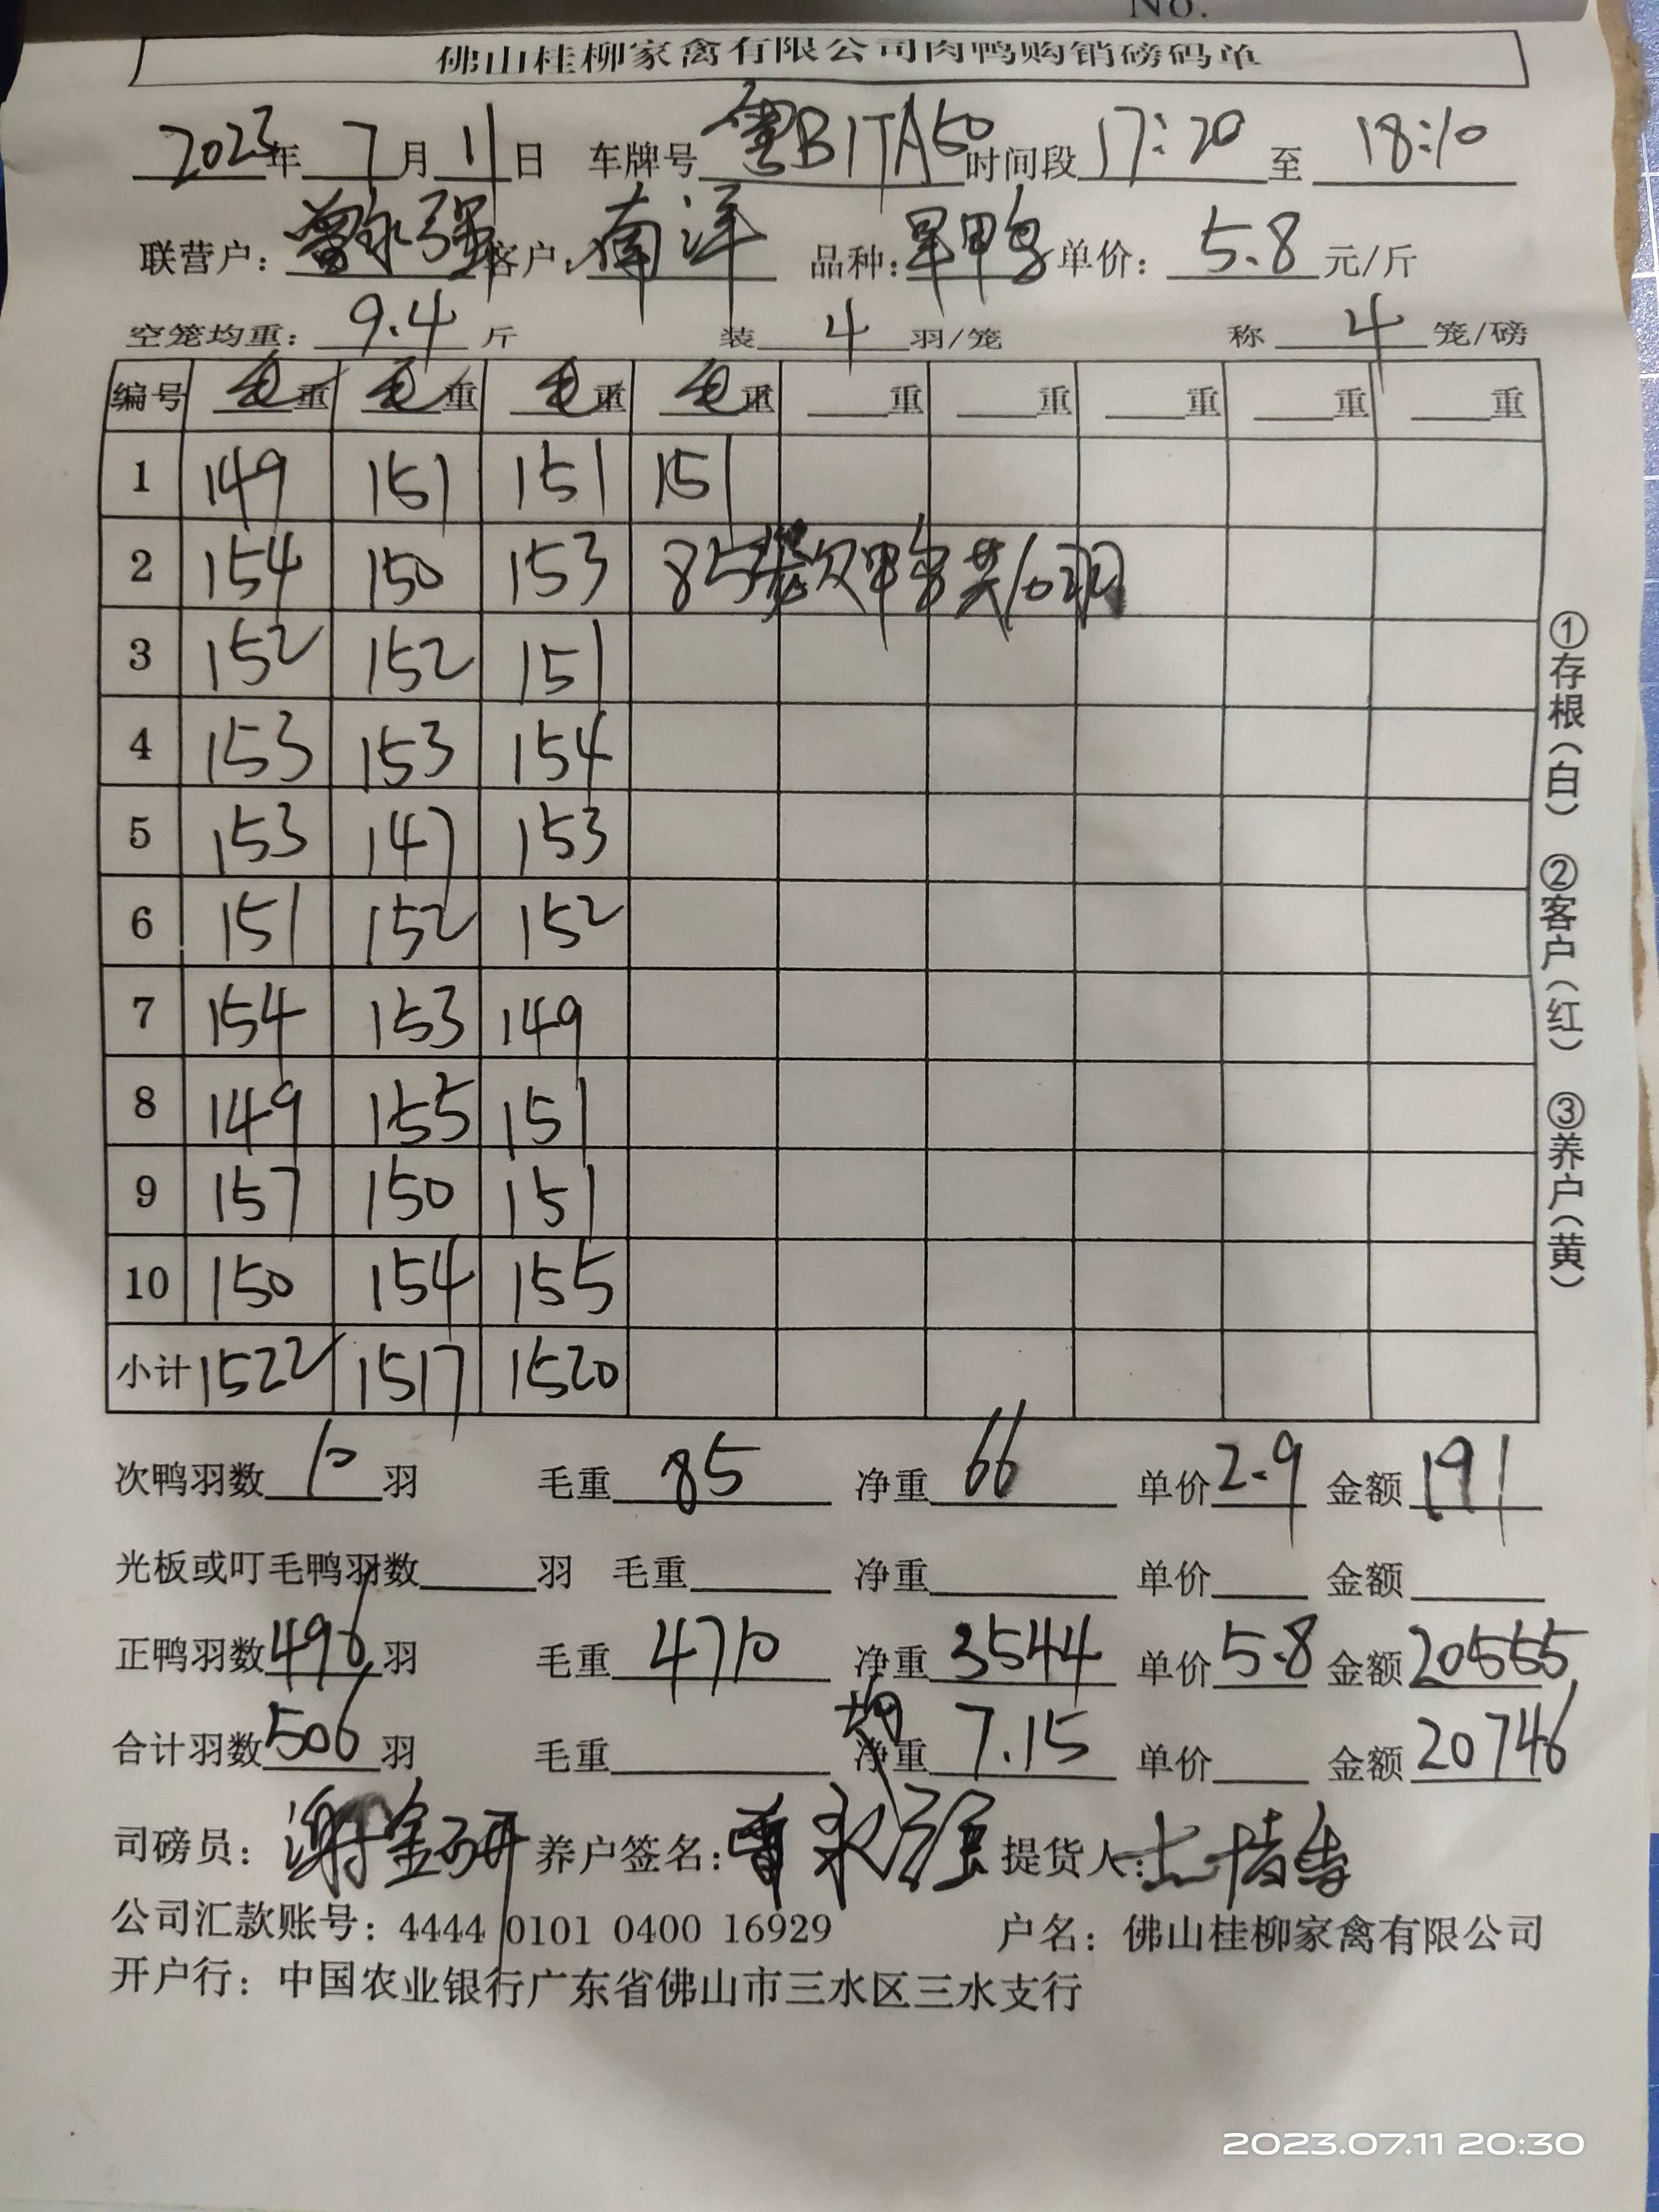 No.
佛山桂柳家禽有限公司肉鸭购销磅码单
2023年 7月 11日 车牌号 粤B1TA50 时间段 17:20 至 18:10
联营户: 曾永强 客户: 南洋 品种: 旱鸭 单价: 5.8 元/斤
空笼均重: 9.4 斤 装 4 羽/笼 称 4 笼/磅
编号 毛重 毛重 毛重 毛重 重 重 重 重 重
1 149 151 151 151
2 154 150 153 85 次鸭共10羽
3 152 152 151
4 153 153 154
5 153 147 153
6 151 152 152
7 154 153 149
8 149 155 151
9 157 150 151
10 150 154 155
小计 1522 1517 1520
①存根(白) ②客户(红) ③养户(黄)
次鸭羽数 10 羽 毛重 85 净重 66 单价 2.9 金额 191
光板或叮毛鸭羽数 羽 毛重 净重 单价 金额
正鸭羽数 496 羽 毛重 4710 净重 3544 单价 5.8 金额 20555
合计羽数 506 羽 毛重 均 净重 7.15 单价 金额 20746
司磅员: 谢金研 养户签名: 曾永强 提货人:
公司汇款账号: 4444 0101 0400 16929 户名: 佛山桂柳家禽有限公司
开户行: 中国农业银行广东省佛山市三水区三水支行
2023.07.11 20:30